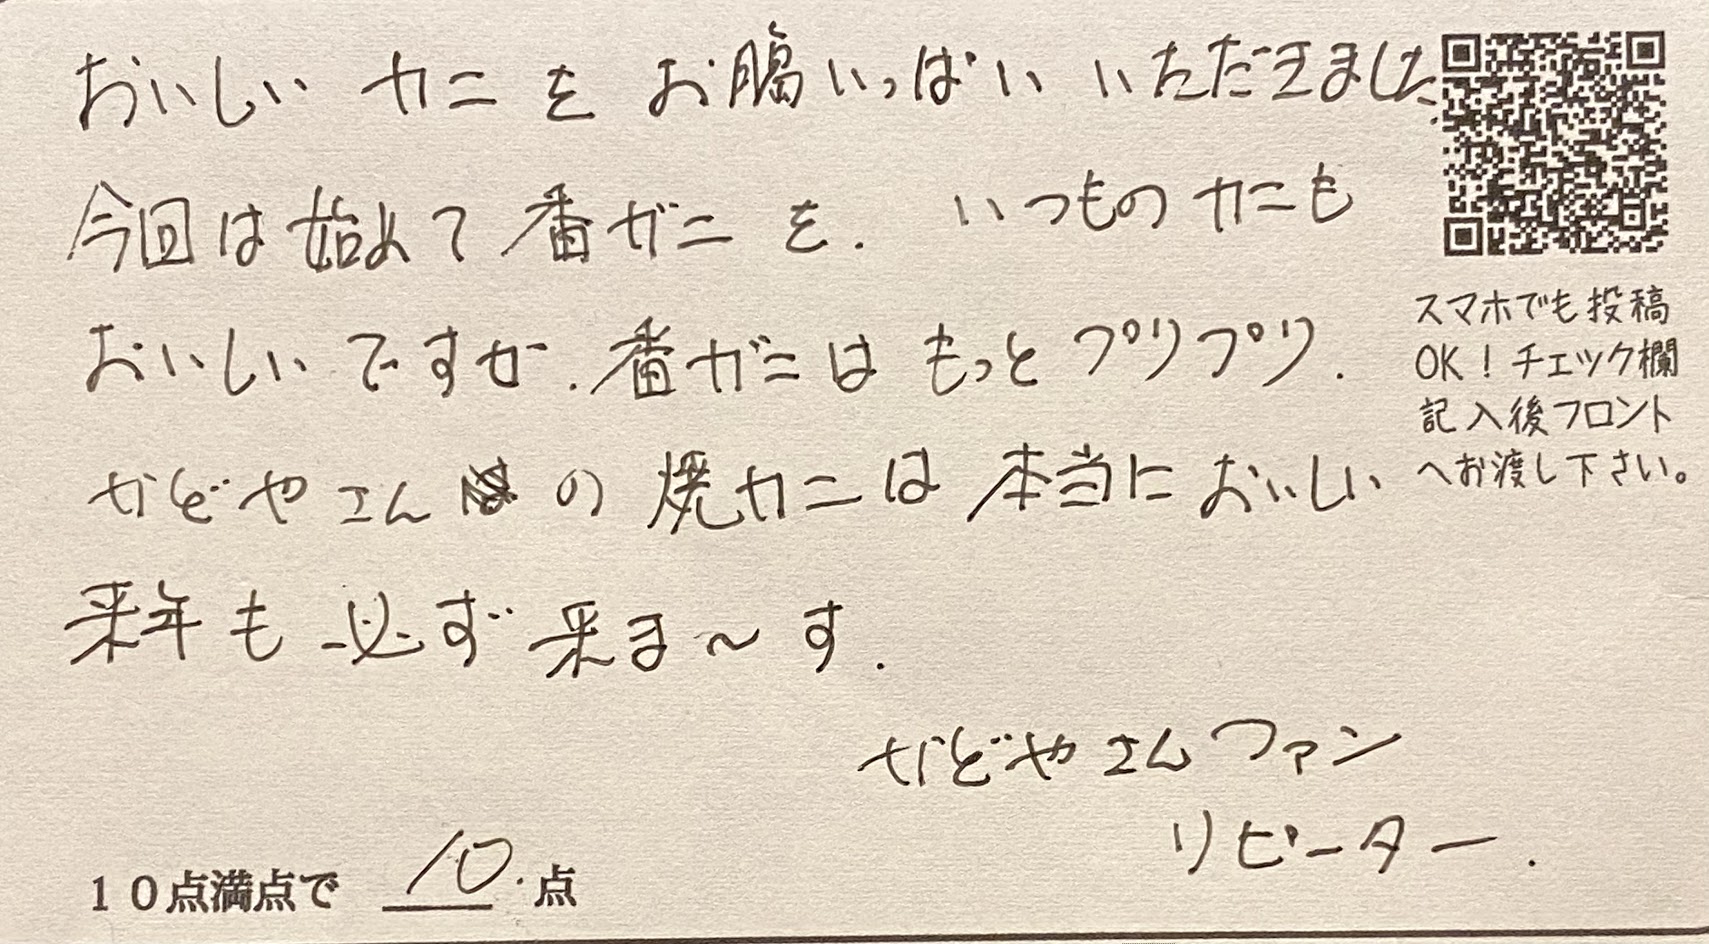 おいしい カニ を お腸いっぱい いただきました.
今回は始めて 番ガニ を. いつもの カニも
おいしいですが. 番ガニは もっと プリプリ.
かどや さん の 焼カニは 本当に おいしい
来年も 必ず 来ま〜す.
かどや さん ファン
リピーター.
10点満点で 10. 点
スマホでも投稿
OK!チェック欄
記入後フロント
へお渡し下さい。